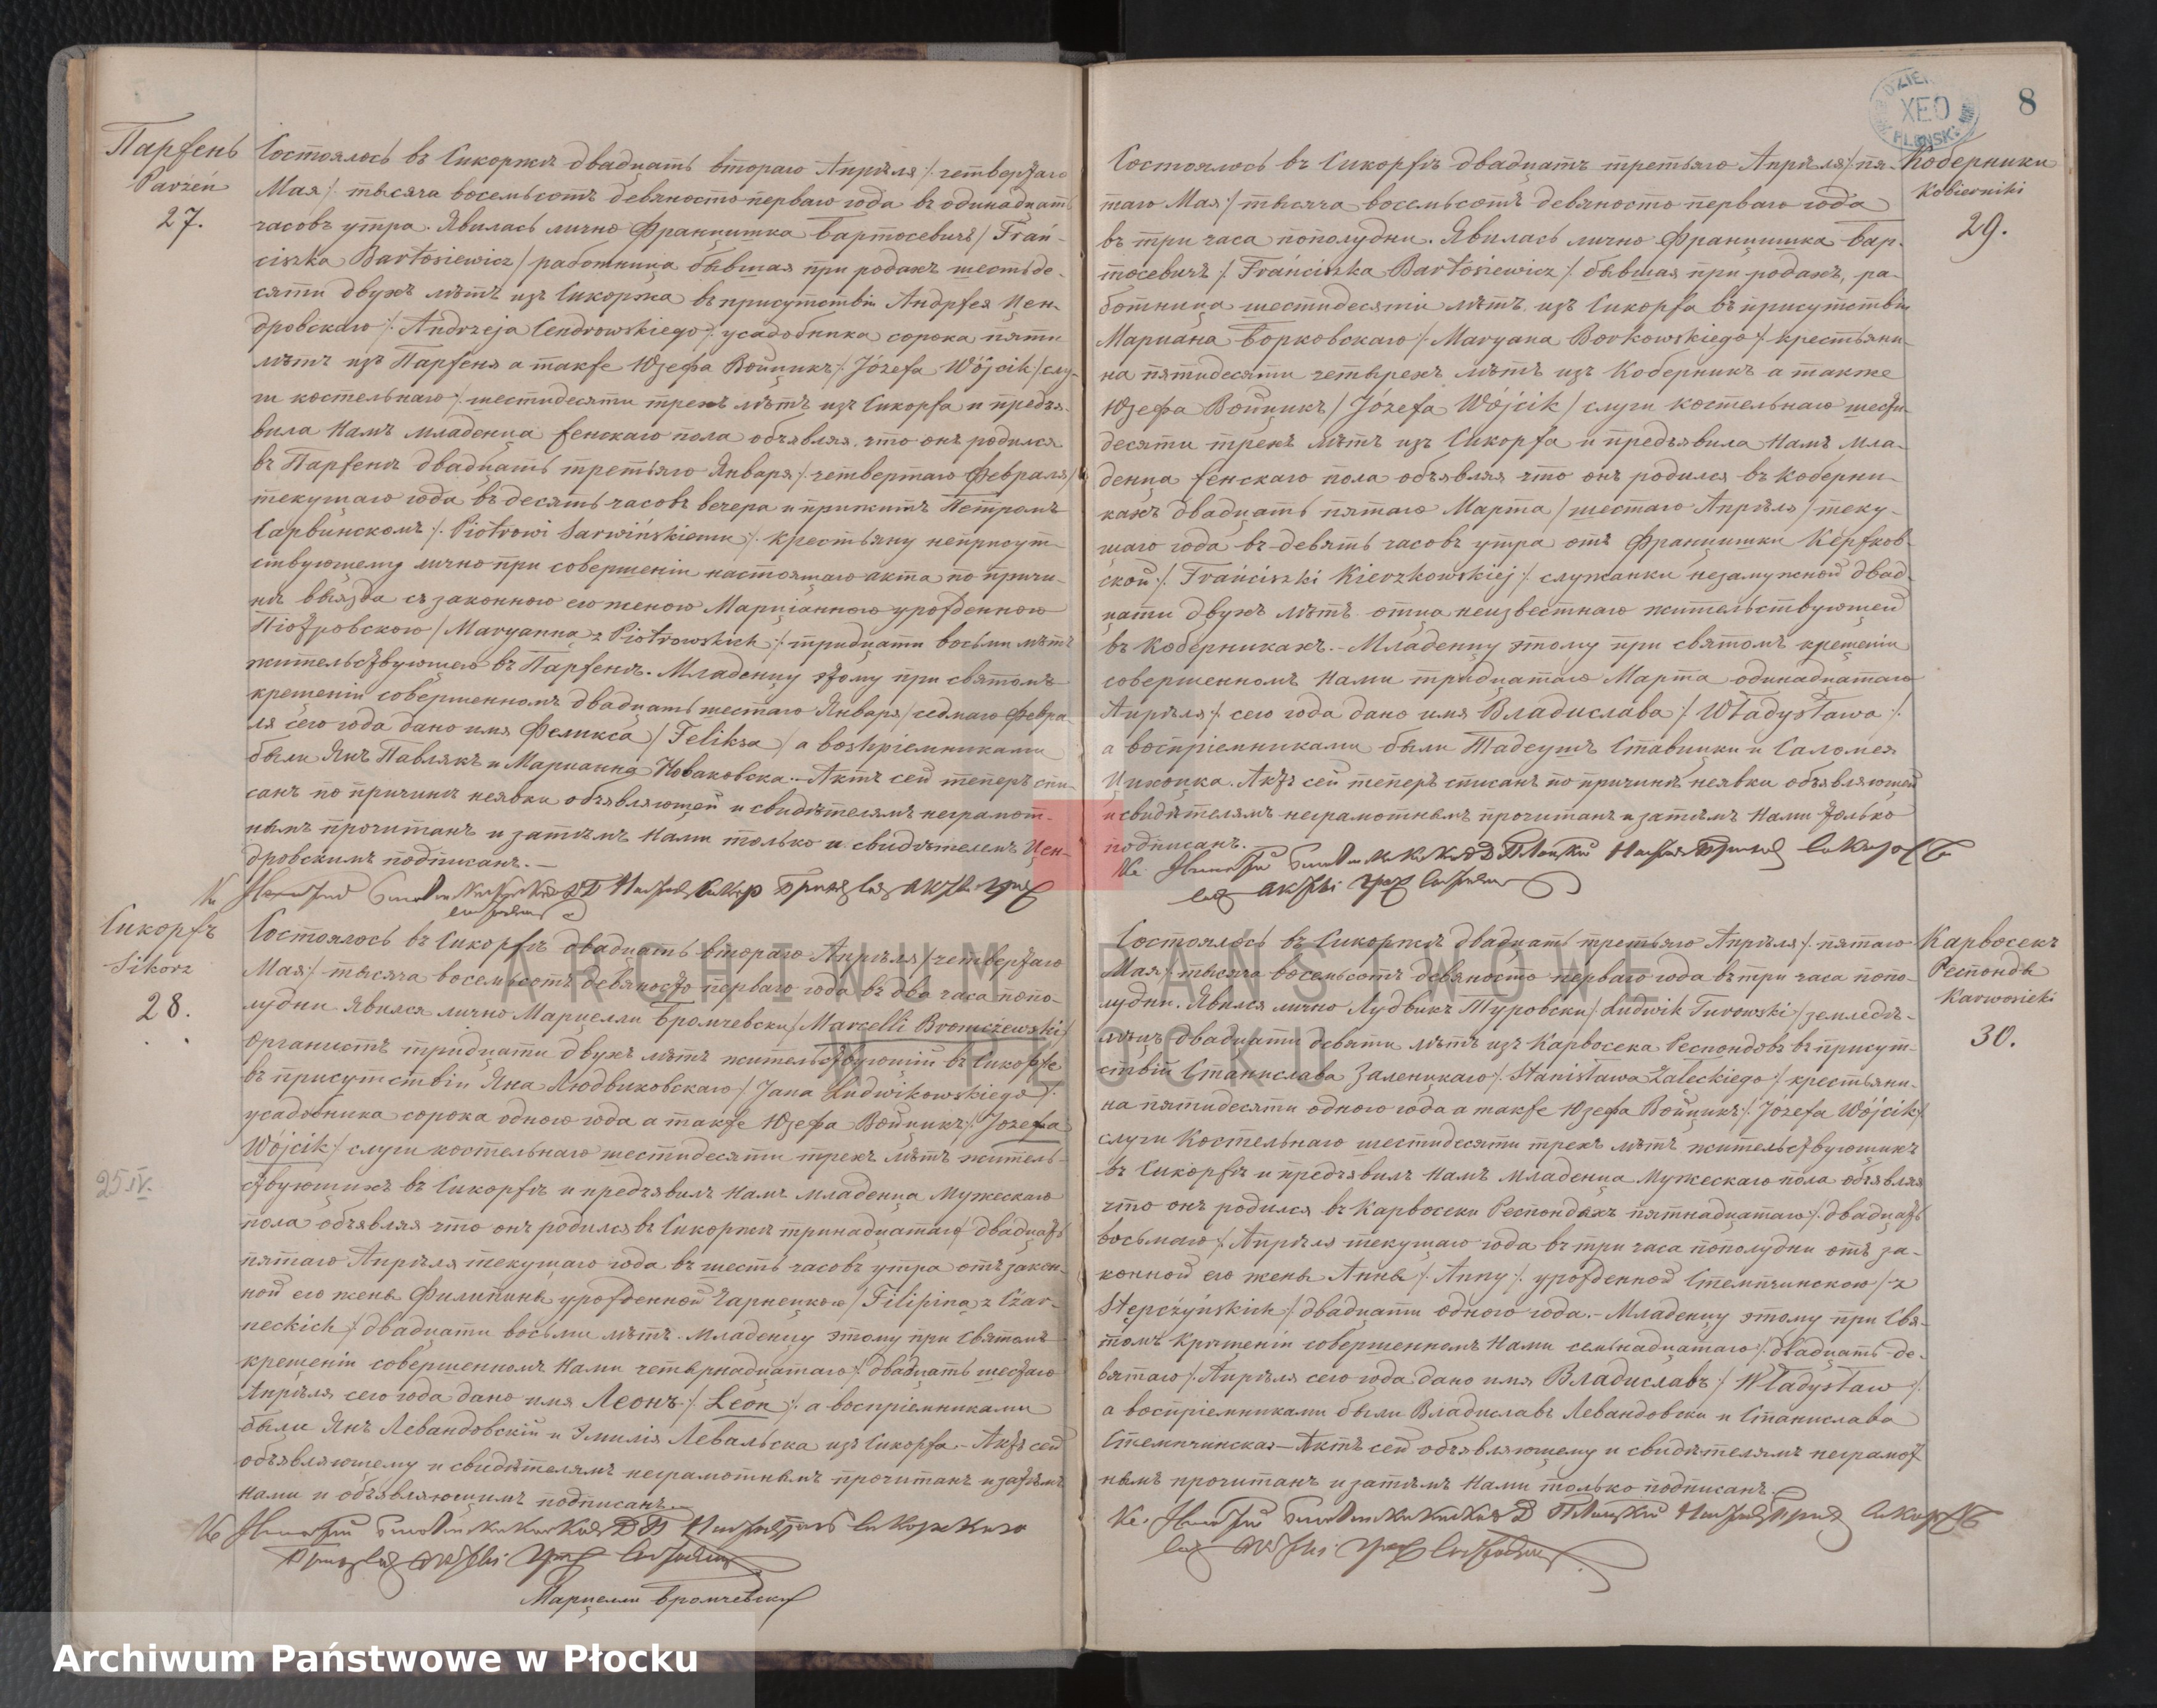 Парженъ
Parzeń
27.
Состоялось въ Сикоржѣ двадцать втораго Апрѣля /: четвертаго
Мая /: тысяча восемьсотъ девяносто перваго года въ одинадцать
часовъ утра. Явилась лично Францишка Бартосевичъ / Fran-
ciszka Bartosiewicz / работница бывшая при родахъ шестьде-
сяти двухъ лѣтъ изъ Сикоржа въ присутствіи Андржея Цен-
дровскаго /: Andrzeja Cendrowskiego /: усадобника сорока пяти
лѣтъ изъ Парженя а также Юзефа Войцикъ /: Józefa Wójcik / слу-
ги костельнаго /: шестидесяти трехъ лѣтъ изъ Сикоржа и предъя-
вила Намъ младенца женскаго пола объявляя, что онъ родился
въ Парженѣ двадцать третьяго Января /: четвертаго Февраля /
текущаго года въ десять часовъ вечера и прижитъ Петромъ
Сарвинскомъ /: Piotrowi Sarwińskiemu /: крестьяну неприсут-
ствующему лично при совершеніи настоящаго акта по причи-
нѣ выѣзда съ законною его женою Марціанною урожденною
Піотровскою / Maryanną z Piotrowskich /: тридцати восьми лѣтъ
жительствующею въ Парженѣ. Младенцу этому при святомъ
крещеніи совершенномъ двадцать шестаго Января / седмаго Февра-
ля сего года дано имя Феликса / Feliksa / а воспріемниками
были Янъ Павлякъ и Марианна Новаковска. Актъ сей теперь спи-
санъ по причинѣ неявки объявляющей и свидѣтелямъ неграмот-
нымъ прочитанъ и затѣмъ Нами только и свидѣтелемъ Цен-
дровскимъ подписанъ. —
Сикоржъ
Sikorz
28.
Состоялось въ Сикоржѣ двадцать втораго Апрѣля / четвертаго
Мая /: тысяча восемьсотъ девяносто перваго года въ два часа попо-
лудни Явился лично Марцелли Бромчевски / Marcelli Bromczewski /
Органистъ тридцати двухъ лѣтъ жительствующій въ Сикорже
въ присутствіи Яна Людвиковскаго / Jana Ludwikowskiego /:
усадобника сорока одного года а также Юзефа Войцикъ /: Józefa
Wójcik / слуги костельнаго шестидесяти трехъ лѣтъ житель-
ствующихъ въ Сикоржѣ и предъявилъ Намъ младенца Мужескаго
25 IV.
пола объявляя что онъ родился въ Сикоржѣ тринадцатаго / двадцать
пятаго Апрѣля текущаго года въ шесть часовъ утра отъ закон-
ной его жены Филипины урожденной Чарнецкою / Filipina z Czar-
neckich /: двадцати восьми лѣтъ. Младенцу этому при Святомъ
крещеніи совершенномъ Нами четырнадцатаго /: двадцать шестаго
Апрѣля сего года дано имя Леонъ /: Leon /: а воспріемниками
были Янъ Левандовскій и Эмилія Левальска изъ Сикоржа. – Актъ сей
объявляющему и свидѣтелямъ неграмотнымъ прочитанъ и затѣмъ
Нами и объявляющимъ подписанъ. —
Марцелли Бромчевски
8
Коберники
Kobierniki
29.
Состоялось въ Сикоржѣ двадцать третьяго Апрѣля /: пя-
таго Мая /: тысяча восемьсотъ девяносто перваго года
въ три часа пополудни. Явилась лично Францишка Бар-
тосевичъ /: Franciszka Bartosiewicz /: бывшая при родахъ, ра-
ботница шестидесяти лѣтъ изъ Сикоржа въ присутствіи
Мариана Борковскаго /: Maryana Borkowskiego /: крестьяни-
на пятидесяти четырехъ лѣтъ изъ Коберникъ а также
Юзефа Войцикъ / Józefa Wójcik / слуги костельнаго шести-
десяти трехъ лѣтъ изъ Сикоржа и предъявила Намъ мла-
денца женскаго пола объявляя что онъ родился въ Коберни-
кахъ двадцать пятаго Марта / шестаго Апрѣля / теку-
щаго года въ девять часовъ утра отъ Францишки Кержков-
ской /: Franciszki Kierzkowskiej /: служанки незамужной двад-
цати двухъ лѣтъ отца неизвестнаго жительствующей
въ Коберникахъ. – Младенцу этому при святомъ крещеніи
совершенномъ Нами тридцатаго Марта одинадцатаго
Апрѣля /: сего года дано имя Владислава /: Władysława /:
а воспріемниками были Тадеушъ Ставицки и Саломея
Цихоцка. Актъ сей теперь списанъ по причинѣ неявки объявляющей
и свидѣтелямъ неграмотнымъ прочитанъ и затѣмъ Нами только
подписанъ. –
Карвосекъ
Респонды
Karwosieki
30.
Состоялось въ Сикоржѣ двадцать третьяго Апрѣля /: пятаго
Мая /: тысяча восемьсотъ девяносто перваго года въ три часа попо-
лудни. Явился лично Лудвикъ Туровски / Ludwik Turowski / земледѣ-
лецъ двадцати девяти лѣтъ изъ Карвосека Респондовъ въ присут-
ствіи Станислава Заленцкаго /: Stanisława Załeckiego /: крестьяни-
на пятидесяти одного года а также Юзефа Войцикъ /: Józefa Wójcik /
слуги Костельнаго шестидесяти трехъ лѣтъ жительствующихъ
въ Сикоржѣ и предъявилъ Намъ младенца Мужескаго пола объявляя
что онъ родился въ Карвосеки Респондахъ пятнадцатаго /: двадцать
восьмаго / Апрѣля текущаго года въ три часа пополудни отъ за-
конной его жены Анны /: Anny /: урожденной Стемпчинскою / z
Stępczyńskich /: двадцати одного года. – Младенцу этому при Свя-
томъ Крещеніи совершенномъ Нами семьнадцатаго /: двадцать де-
вятаго /: Апрѣля сего года дано имя Владиславъ /: Władysław /:
а воспріемниками были Владиславъ Левандовски и Станислава
Стемпчинска – Актъ сей объявляющему и свидѣтелямъ неграмот-
нымъ прочитанъ и затѣмъ Нами только подписанъ.
ARCHIWUM PAŃSTWOWE
W PŁOCKU
Archiwum Państwowe w Płocku